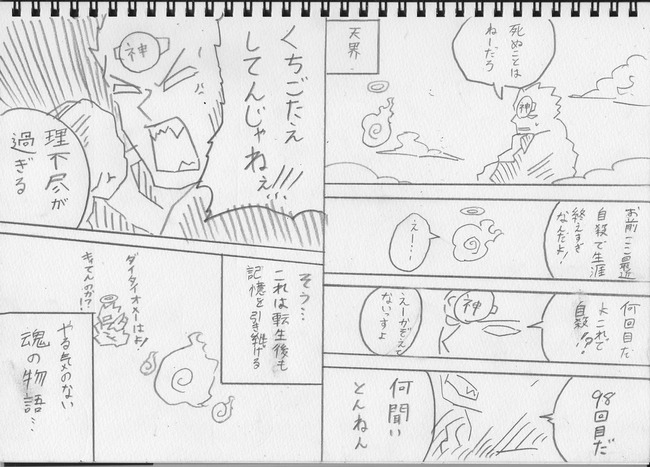 死ぬことは
ねーだろ
神
天界
お前ここ最近
自殺で生涯
終えすぎ
なんだよ!
えー…
何回目だ
よこれで
自殺!?
神
えーかぞえて
ないすよ
98回目だ
何聞い
とんねん
くちごたえ
してんじゃねぇ!!!
神
理不尽が
過ぎる
そう…
これは転生後も
記憶を引き継げる
ダイタイオメーはよ!
キィてんのか?!
やる気のない
魂の物語…